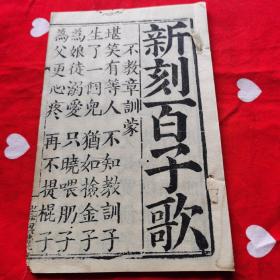 新刻百子歌
不教章訓蒙
堪笑有等人 不知教訓子
生了一 兒 猶如撿金子
為娘徒溺愛 只曉喂肥子
為父更心疼 再不提棍子